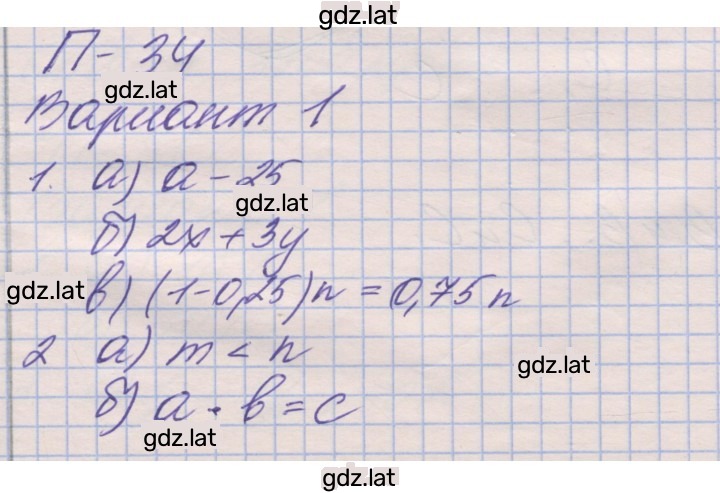 gdz.lat
П-34
gdz.lat
Вариант 1
1. а) a - 25
gdz.lat
б) 2x + 3y
gdz.lat
в) (1-0,25)n = 0,75n
2 а) m < n
gdz.lat
б) a · b = c
gdz.lat
gdz.lat